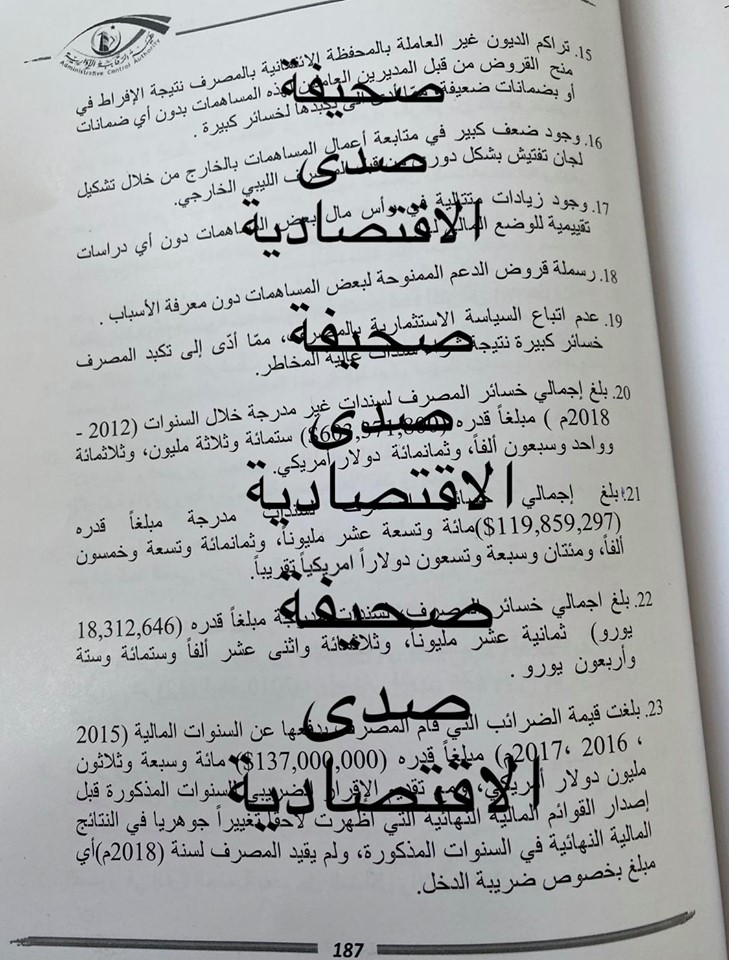 هيئة الرقابة الإدارية
Administrative Control Authority
15. تراكم الديون غير العاملة بالمحفظة الائتمانية بالمصرف نتيجة الإفراط في
منح القروض من قبل المديرين العاملين بهذه المساهمات بدون أي ضمانات
أو بضمانات ضعيفة، ممّا أدى إلى تكبدها لخسائر كبيرة .
16. وجود ضعف كبير في متابعة أعمال المساهمات بالخارج من خلال تشكيل
لجان تفتيش بشكل دوري من قبل المصرف الليبي الخارجي.
17. وجود زيادات متتالية في رأس مال بعض المساهمات دون أي دراسات
تقييمية للوضع المالي
18. رسملة قروض الدعم الممنوحة لبعض المساهمات دون معرفة الأسباب .
19. عدم اتباع السياسة الاستثمارية بالمصرف، ممّا أدّى إلى تكبد المصرف
خسائر كبيرة نتيجة شراء سندات عالية المخاطر.
20. بلغ إجمالي خسائر المصرف لسندات غير مدرجة خلال السنوات (2012 -
2018م ) مبلغاً قدره ستمائة وثلاثة مليون، وثلاثمائة
وواحد وسبعون ألفاً، وثمانمائة دولار أمريكي.
21. بلغ إجمالي خسائر المصرف لسندات مدرجة مبلغاً قدره
(119,859,297$)مائة وتسعة عشر مليوناً، وثمانمائة وتسعة وخمسون
ألفاً، ومئتان وسبعة وتسعون دولاراً امريكياً تقريباً.
22. بلغ اجمالي خسائر المصرف لسندات مدرجة مبلغاً قدره (18,312,646
يورو) ثمانية عشر مليوناً، وثلاثمائة واثنى عشر ألفاً وستمائة وستة
وأربعون يورو .
23. بلغت قيمة الضرائب التي قام المصرف بدفعها عن السنوات المالية (2015
، 2016 ،2017م) مبلغاً قدره (137,000,000$) مائة وسبعة وثلاثون
مليون دولار أمريكي، وتم تقديم الإقرار الضريبي للسنوات المذكورة قبل
إصدار القوائم المالية النهائية التي أظهرت لاحقاً تغييراً جوهريا في النتائج
المالية النهائية في السنوات المذكورة، ولم يقيد المصرف لسنة (2018م)أي
مبلغ بخصوص ضريبة الدخل.
187
صحيفة
صدى
الاقتصادية
صحيفة
صدى
الاقتصادية
صحيفة
صدى
الاقتصادية